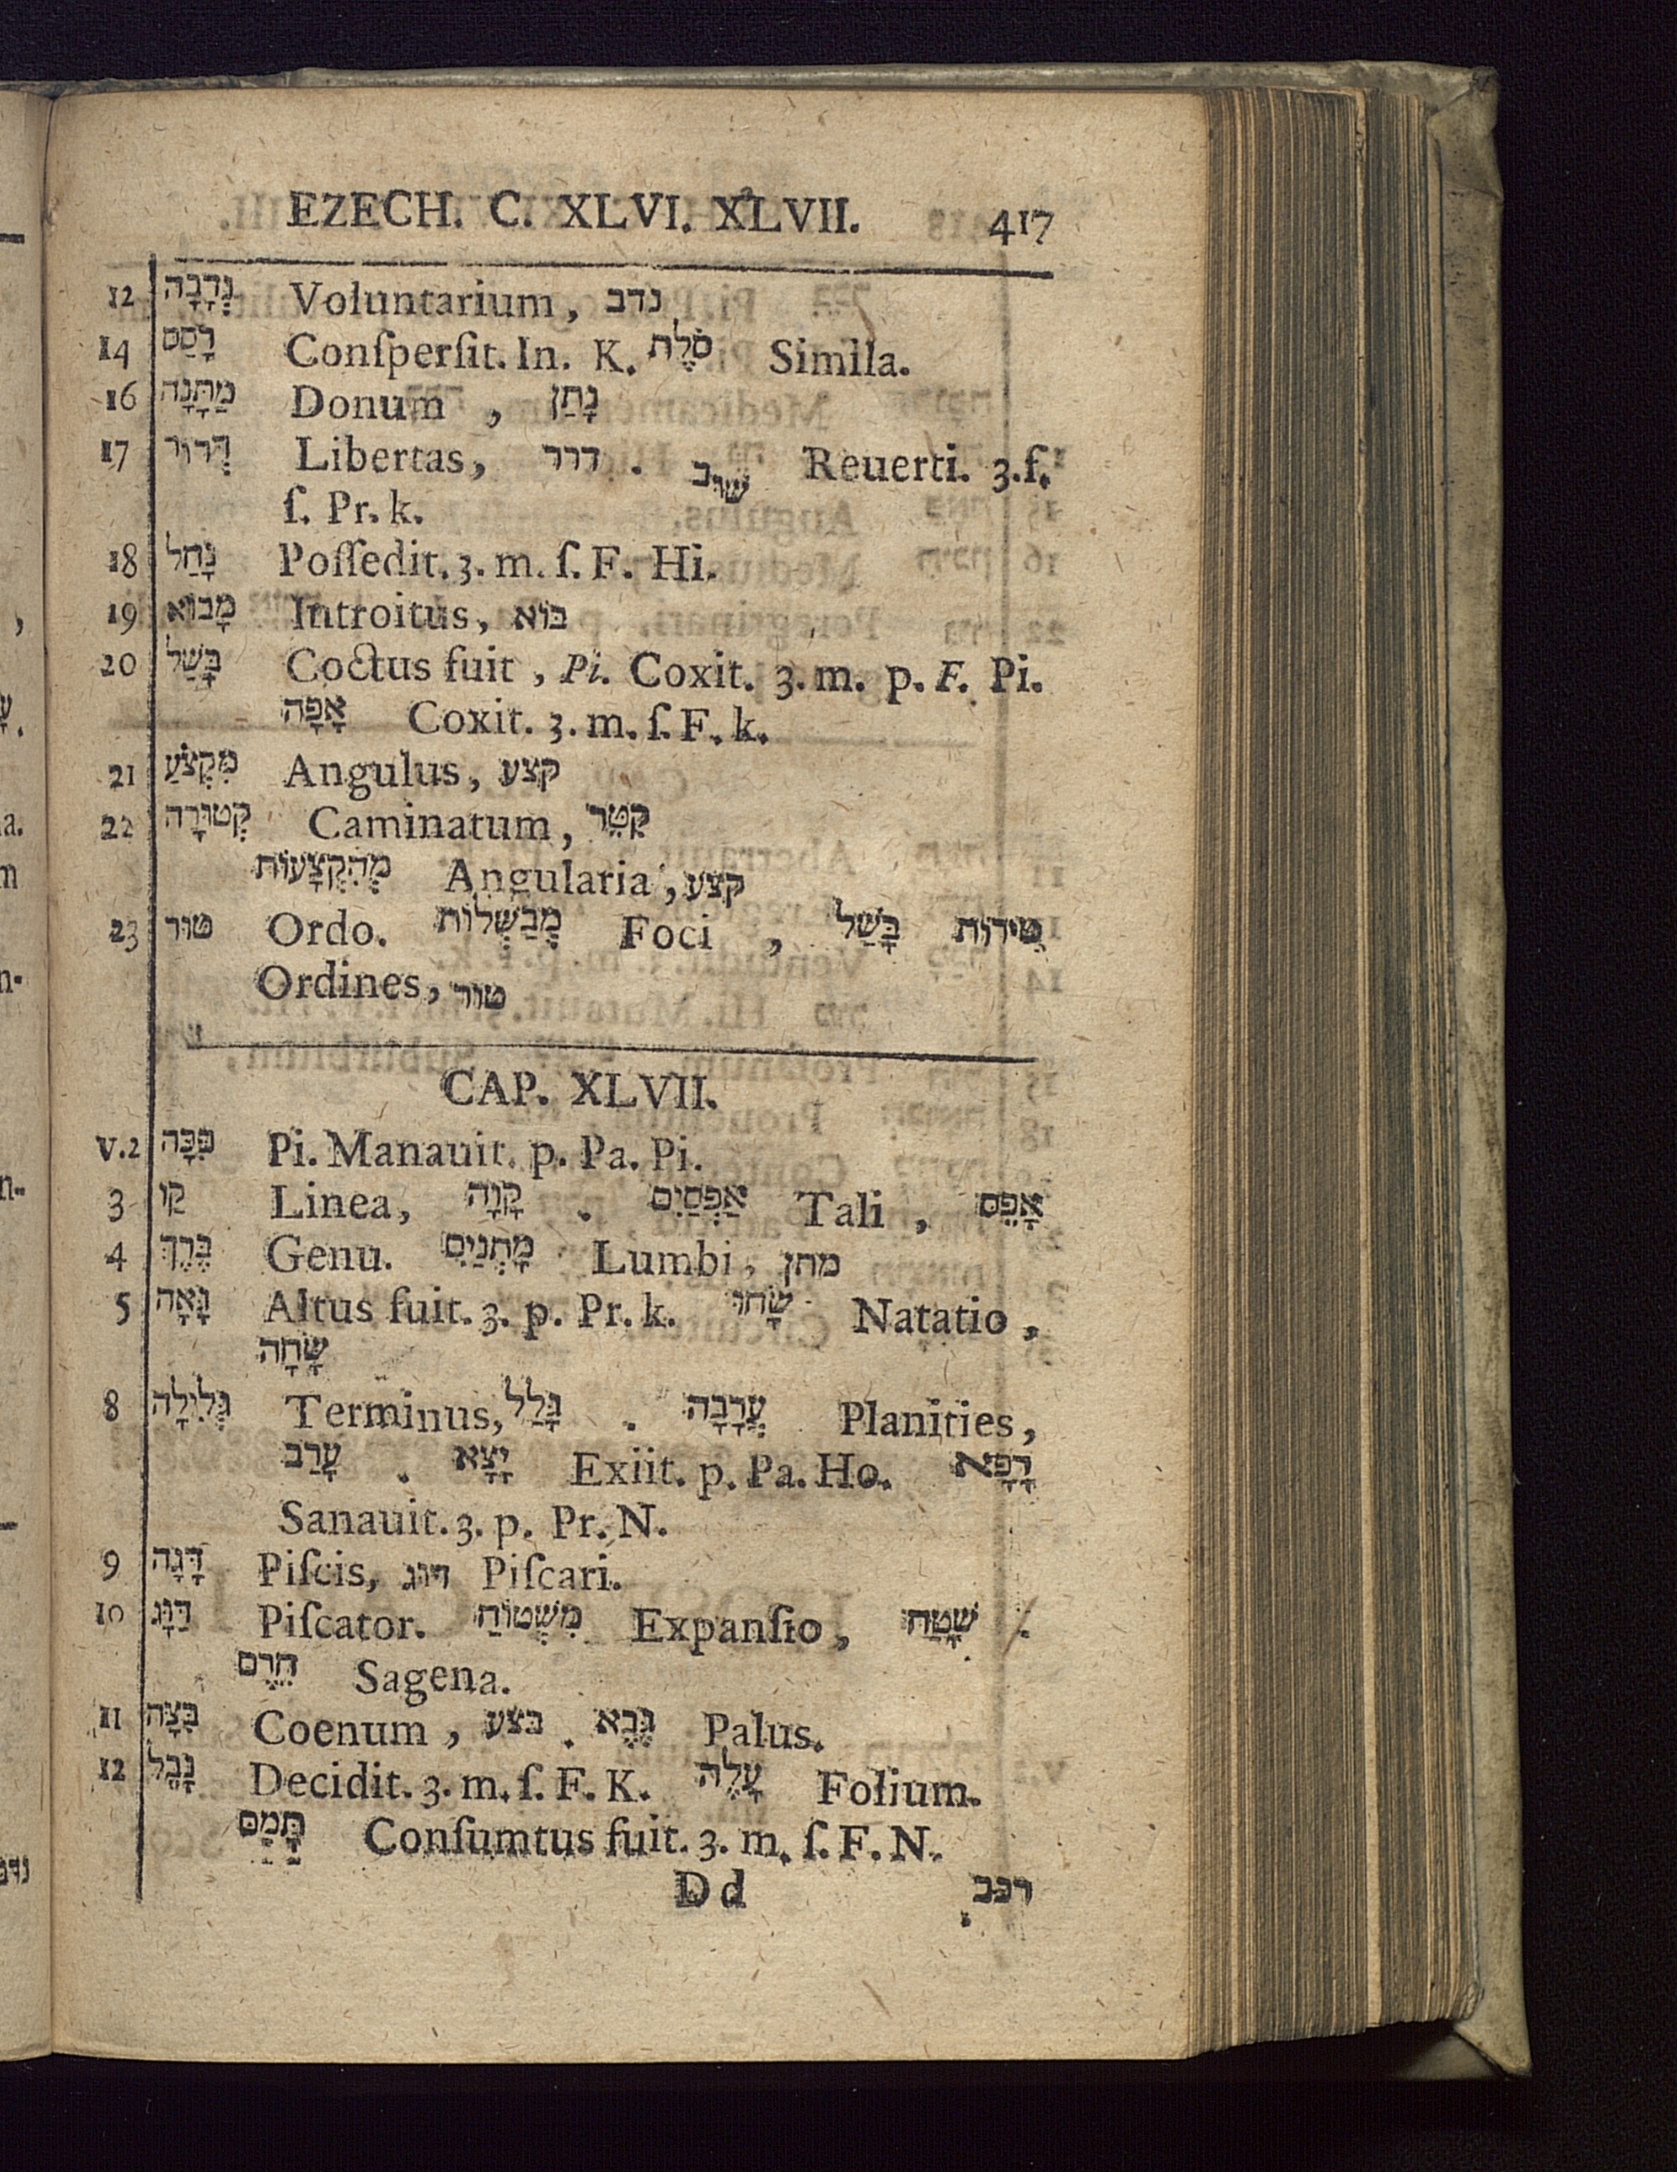 EZECH. C. XLVI. XLVII. 417
12 נְדָבָה Voluntarium, נדב
14 רָסַס Conſperſit. In. K. סֹלֶת Simila.
16 מַתָּנָה Donum, נָתַן
17 דְּרוֹר Libertas, דרר . שׁוּב Reuerti. 3. f.
ſ. Pr. k.
18 נָחַל Poſſedit. 3. m. ſ. F. Hi.
19 מָבוֹא Introitus, בּוֹא
20 בָּשַׁל Coctus fuit, Pi. Coxit. 3. m. p. F. Pi.
אָפָה Coxit. 3. m. ſ. F. k.
21 מִקְצֹעַ Angulus, קצע
22 קְטוּרָה Caminatum, קִטֵּר
מְהֻקְצָעוֹת Angularia, קצע
23 טוּר Ordo. מְבַשְּׁלוֹת Foci, בָּשַׁל טִירוֹת
Ordines, טור
CAP. XLVII.
V.2 פִּכָּה Pi. Manauit. p. Pa. Pi.
3 קַו Linea, קָוָה . אַפְסַיִם Tali, אָפֵס
4 בֶּרֶךְ Genu. מָתְנַיִם Lumbi, מתן
5 גָּאָה Altus fuit. 3. p. Pr. k. שָׂחוּ Natatio,
שָׂחָה
8 גְּלִילָה Terminus, גָּלַל . עֲרָבָה Planities,
עָרַב . יָצָא Exiit. p. Pa. Ho. רָפָא
Sanauit. 3. p. Pr. N.
9 דָּגָה Piſcis, דּוּג Piſcari.
10 דַּוָּג Piſcator. מִשְׁטוֹחַ Expanſio, שָׁטַח .
חֵרֶם Sagena.
11 בִּצָּה Coenum, בצע . גֶּבֶא Palus.
12 נָבֵל Decidit. 3. m. ſ. F. K. עָלֶה Folium.
תָּמַם Conſumtus fuit. 3. m. ſ. F. N.
Dd